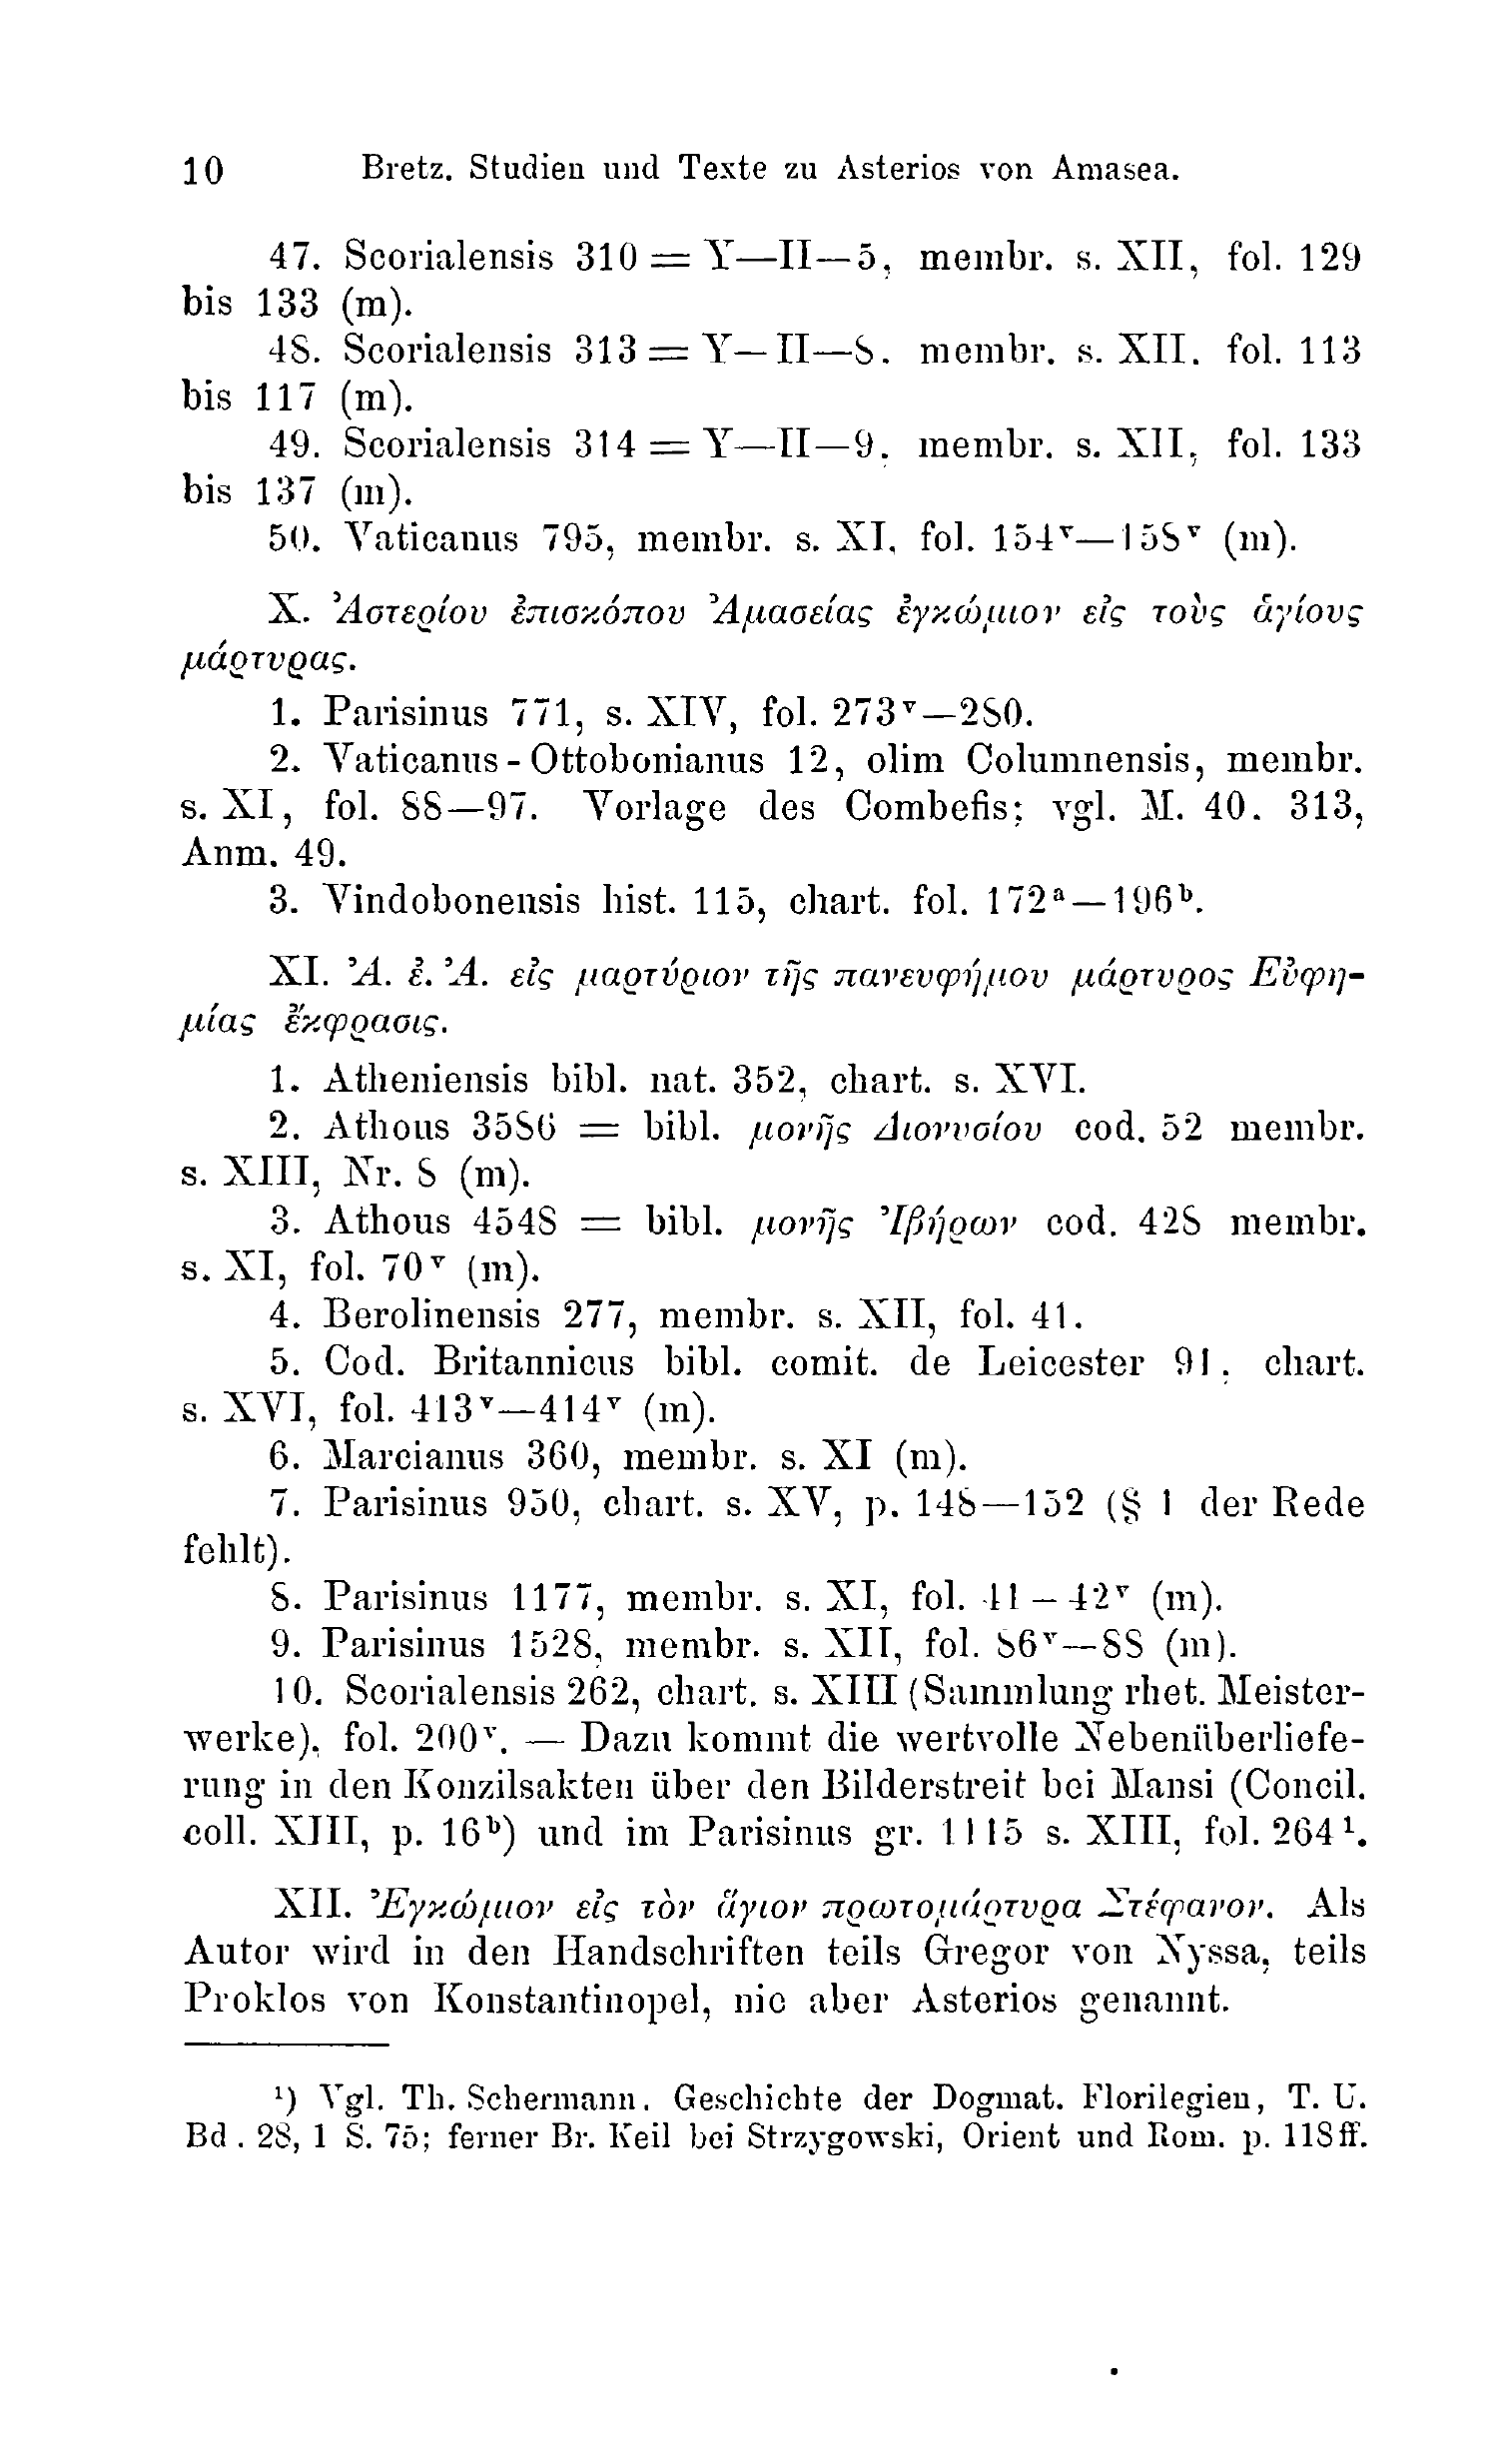 10 Bretz. Studien und Texte zu Asterios von Amasea.
47. Scorialensis 310 = Y—II—5, membr. s. XII, fol. 129
bis 133 (m).
48. Scorialensis 313 = Y—II—8. membr. s. XII. fol. 113
bis 117 (m).
49. Scorialensis 314 = Y—II—9. membr. s. XII, fol. 133
bis 137 (m).
50. Vaticanus 795, membr. s. XI, fol. 154ᵛ—158ᵛ (m).
X. Ἀστερίου ἐπισκόπου Ἀμασείας ἐγκώμιον εἰς τοὺς ἁγίους
μάρτυρας.
1. Parisinus 771, s. XIV, fol. 273ᵛ—280.
2. Vaticanus-Ottobonianus 12, olim Columnensis, membr.
s. XI, fol. 88—97. Vorlage des Combefis; vgl. M. 40. 313,
Anm. 49.
3. Vindobonensis hist. 115, chart. fol. 172ᵃ—196ᵇ.
XI. Ἀ. ἐ. Ἀ. εἰς μαρτύριον τῆς πανευφήμου μάρτυρος Εὐφη-
μίας ἔκφρασις.
1. Atheniensis bibl. nat. 352, chart. s. XVI.
2. Athous 3586 = bibl. μονῆς Διονυσίου cod. 52 membr.
s. XIII, Nr. 8 (m).
3. Athous 4548 = bibl. μονῆς Ἰβήρων cod. 428 membr.
s. XI, fol. 70ᵛ (m).
4. Berolinensis 277, membr. s. XII, fol. 41.
5. Cod. Britannicus bibl. comit. de Leicester 91, chart.
s. XVI, fol. 413ᵛ—414ᵛ (m).
6. Marcianus 360, membr. s. XI (m).
7. Parisinus 950, chart. s. XV, p. 148—152 (§ 1 der Rede
fehlt).
8. Parisinus 1177, membr. s. XI, fol. 41—42ᵛ (m).
9. Parisinus 1528, membr. s. XII, fol. 86ᵛ—88 (m).
10. Scorialensis 262, chart. s. XIII (Sammlung rhet. Meister-
werke), fol. 200ᵛ. — Dazu kommt die wertvolle Nebenüberliefe-
rung in den Konzilsakten über den Bilderstreit bei Mansi (Concil.
coll. XIII, p. 16ᵇ) und im Parisinus gr. 1115 s. XIII, fol. 264¹.
XII. Ἐγκώμιον εἰς τὸν ἅγιον πρωτομάρτυρα Στέφανον. Als
Autor wird in den Handschriften teils Gregor von Nyssa, teils
Proklos von Konstantinopel, nie aber Asterios genannt.
¹) Vgl. Th. Schermann. Geschichte der Dogmat. Florilegien, T. U.
Bd. 28, 1 S. 75; ferner Br. Keil bei Strzygowski, Orient und Rom. p. 118ff.